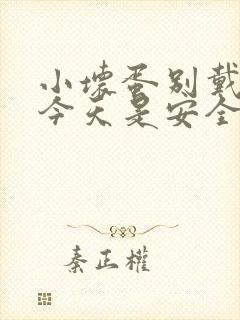 小壊蛋别戴
今天是安全
秦正權